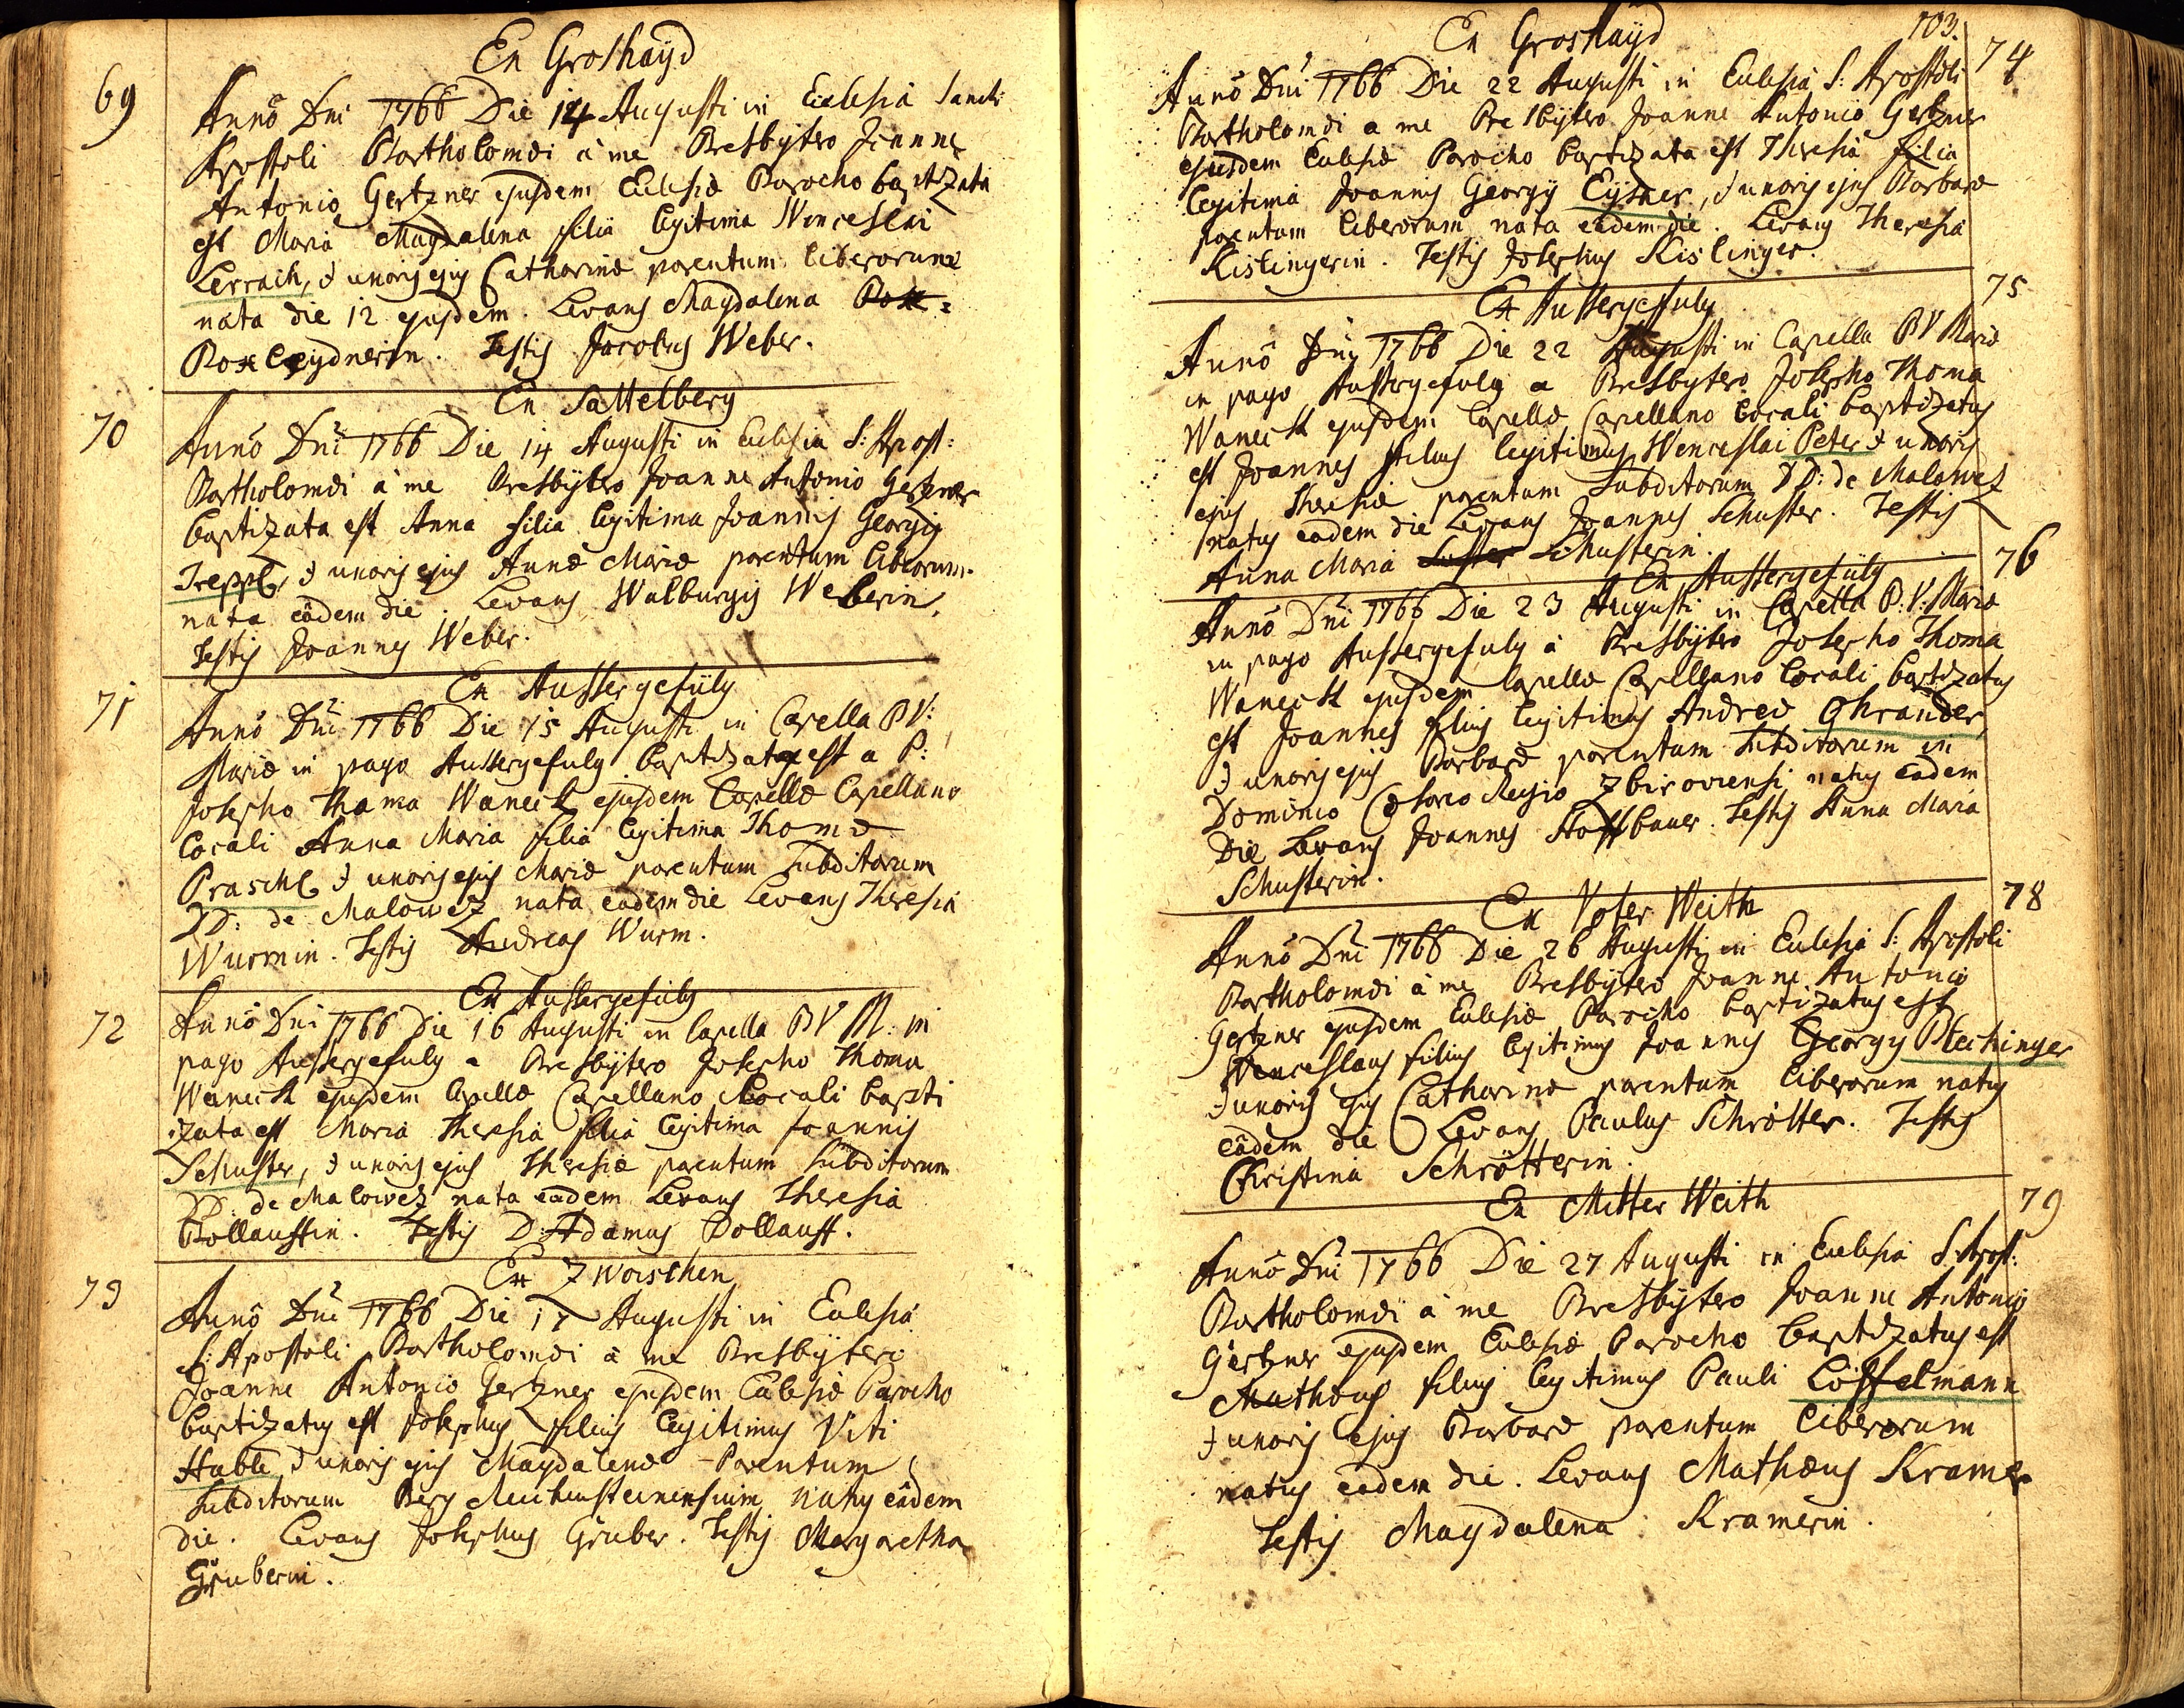 Ex Groshaÿd
69
Anno Dni 1766 Die 14 Augusti in Ecclesia Sancti
Apostoli Bartholomæi à me Presbytero Joanne
Antonio Gertzner ejusdem Ecclesiæ Parocho baptizata
est Maria Magdalena filia legitima Wenceslai
Lerrach, & uxoris ejus Catharinæ parentum liberorum
nata die 12 ejusdem. Levans Magdalena
Testis Jacobus Weber.
Ex Sattelberg
70
Anno Dni 1766 Die 14 Augusti in Ecclesia S: Apost:
Bartholomæi à me Presbytero Joanne Antonio Gertzner
baptizata est Anna filia legitima Joannis Georgij
Treppl, & uxoris ejus Annæ Mariæ parentum liberorum.
nata eâdem die. Levans Walburgis Weberin,
Testis Joannes Weber.
Ex Aussergefülg
71
Anno Dni 1766 Die 15 Augusti in Capella BV:
Mariæ in pago Aussergefulg baptizata est a P:
Josepho Thoma Waneck ejusdem Capellæ Capellano
locali Anna Maria filia legitima Thomæ
Praschl & uxoris ejus Mariæ parentum subditorum
DD: de Malowez nata eadem die Levans Theresia
Wurmin. Testis Andreas Wurm.
Ex Aussergefulg
72
Anno Dni 1766 Die 16 Augusti in Capella BV M: in
pago Aussergefulg a Presbytero Josepho Thoma
Waneck ejusdem Capellæ Capellano locali bapti
zata est Maria Theresia filia legitima Joannis
Schuster, & uxoris ejus Theresiæ parentum subditorum
DD. de Malowez nata eadem Levans Theresia
Pollauffin. Testis D: Adamus Pollauff.
Ex Zwoischen
73
Anno Dni 1766 Die 17 Augusti in Ecclesia
S: Apostoli Bartholomæi à me Presbytero
Joanne Antonio Gertzner ejusdem Ecclesiæ Parocho
baptizatus est Josephus filius legitimus Viti
Habli & uxoris ejus Magdalenæ Parentum
subditorum Berg Reichensteinensium natus eâdem
die. Levans Josephus Gruber. Testis Margaretha
Gruberin.
103.
Ex Groshaijd
74
Anno Dni 1766 Die 22 Augusti in Ecclesia S: Apostoli
Bartholomæi a me Presbytero Joanne Antonio Gertzner
ejusdem Ecclesiæ Parocho baptizata est Theresia filia
legitima Joannis Georgij Eysner, & uxoris ejus Barbaræ
parentum liberorum nata eadem die. Levans Theresia
Kislingerin. Testis Josephus Kislinger.
75
Ex Aussergefulg
Anno Dni 1766 Die 22 Augusti in Capella BV Mariæ
in pago Aussergefulg a Presbytero Josepho Thoma
Waneck ejusdem Capellæ Capellano locali baptizatus
est Joannes filius legitimus Wenceslai Peter & uxoris
ejus Theresiæ parentum subditorum DD: de Malowez
natus eadem die Levans Joannes Schuster. Testis
Anna Maria Schusterin.
76
Ex Aussergefülg
Anno Dni 1766 Die 23 Augusti in Capella B: V: Mariæ
in pago Aussergefulg à Presbytero Josepho Thoma
Waneck ejusdem Capellæ Capellano locali baptizatus
est Joannes filius legitimus Andreæ Ghrander
& uxoris ejus Barbaræ parentum subditorum in
Dominio Cæsareo Regio Zbiroviensi natus eadem
Die Levans Joannes Hoffbauer. Testis Anna Maria
Schusterin.
78
Ex Voter Weith
Anno Dni 1766 Die 26 Augusti in Ecclesia S: Apostoli
Bartholomæi à me Presbytero Joanne Antonio
Gertzner ejusdem Ecclesiæ Parocho baptizatus est
Wenceslaus filius legitimus Joannis Georgij Plechinger
& uxoris ejus Catharinæ parentum liberorum natus
eâdem die Levans Paulus Schrötter. Testis
Christina Schrötterin.
79
Ex Mitter Weith
Anno Dni 1766 Die 27 Augusti in Ecclesia S: Apost:
Bartholomæi à me Presbytero Joanne Antonio
Gertzner ejusdem Ecclesiæ Parocho baptizatus est
Mathæus filius legitimus Pauli Löffelmann
& uxoris ejus Barbaræ parentum liberorum
natus eadem die. Levans Mathæus Kramer
Testis Magdalena Kramerin.